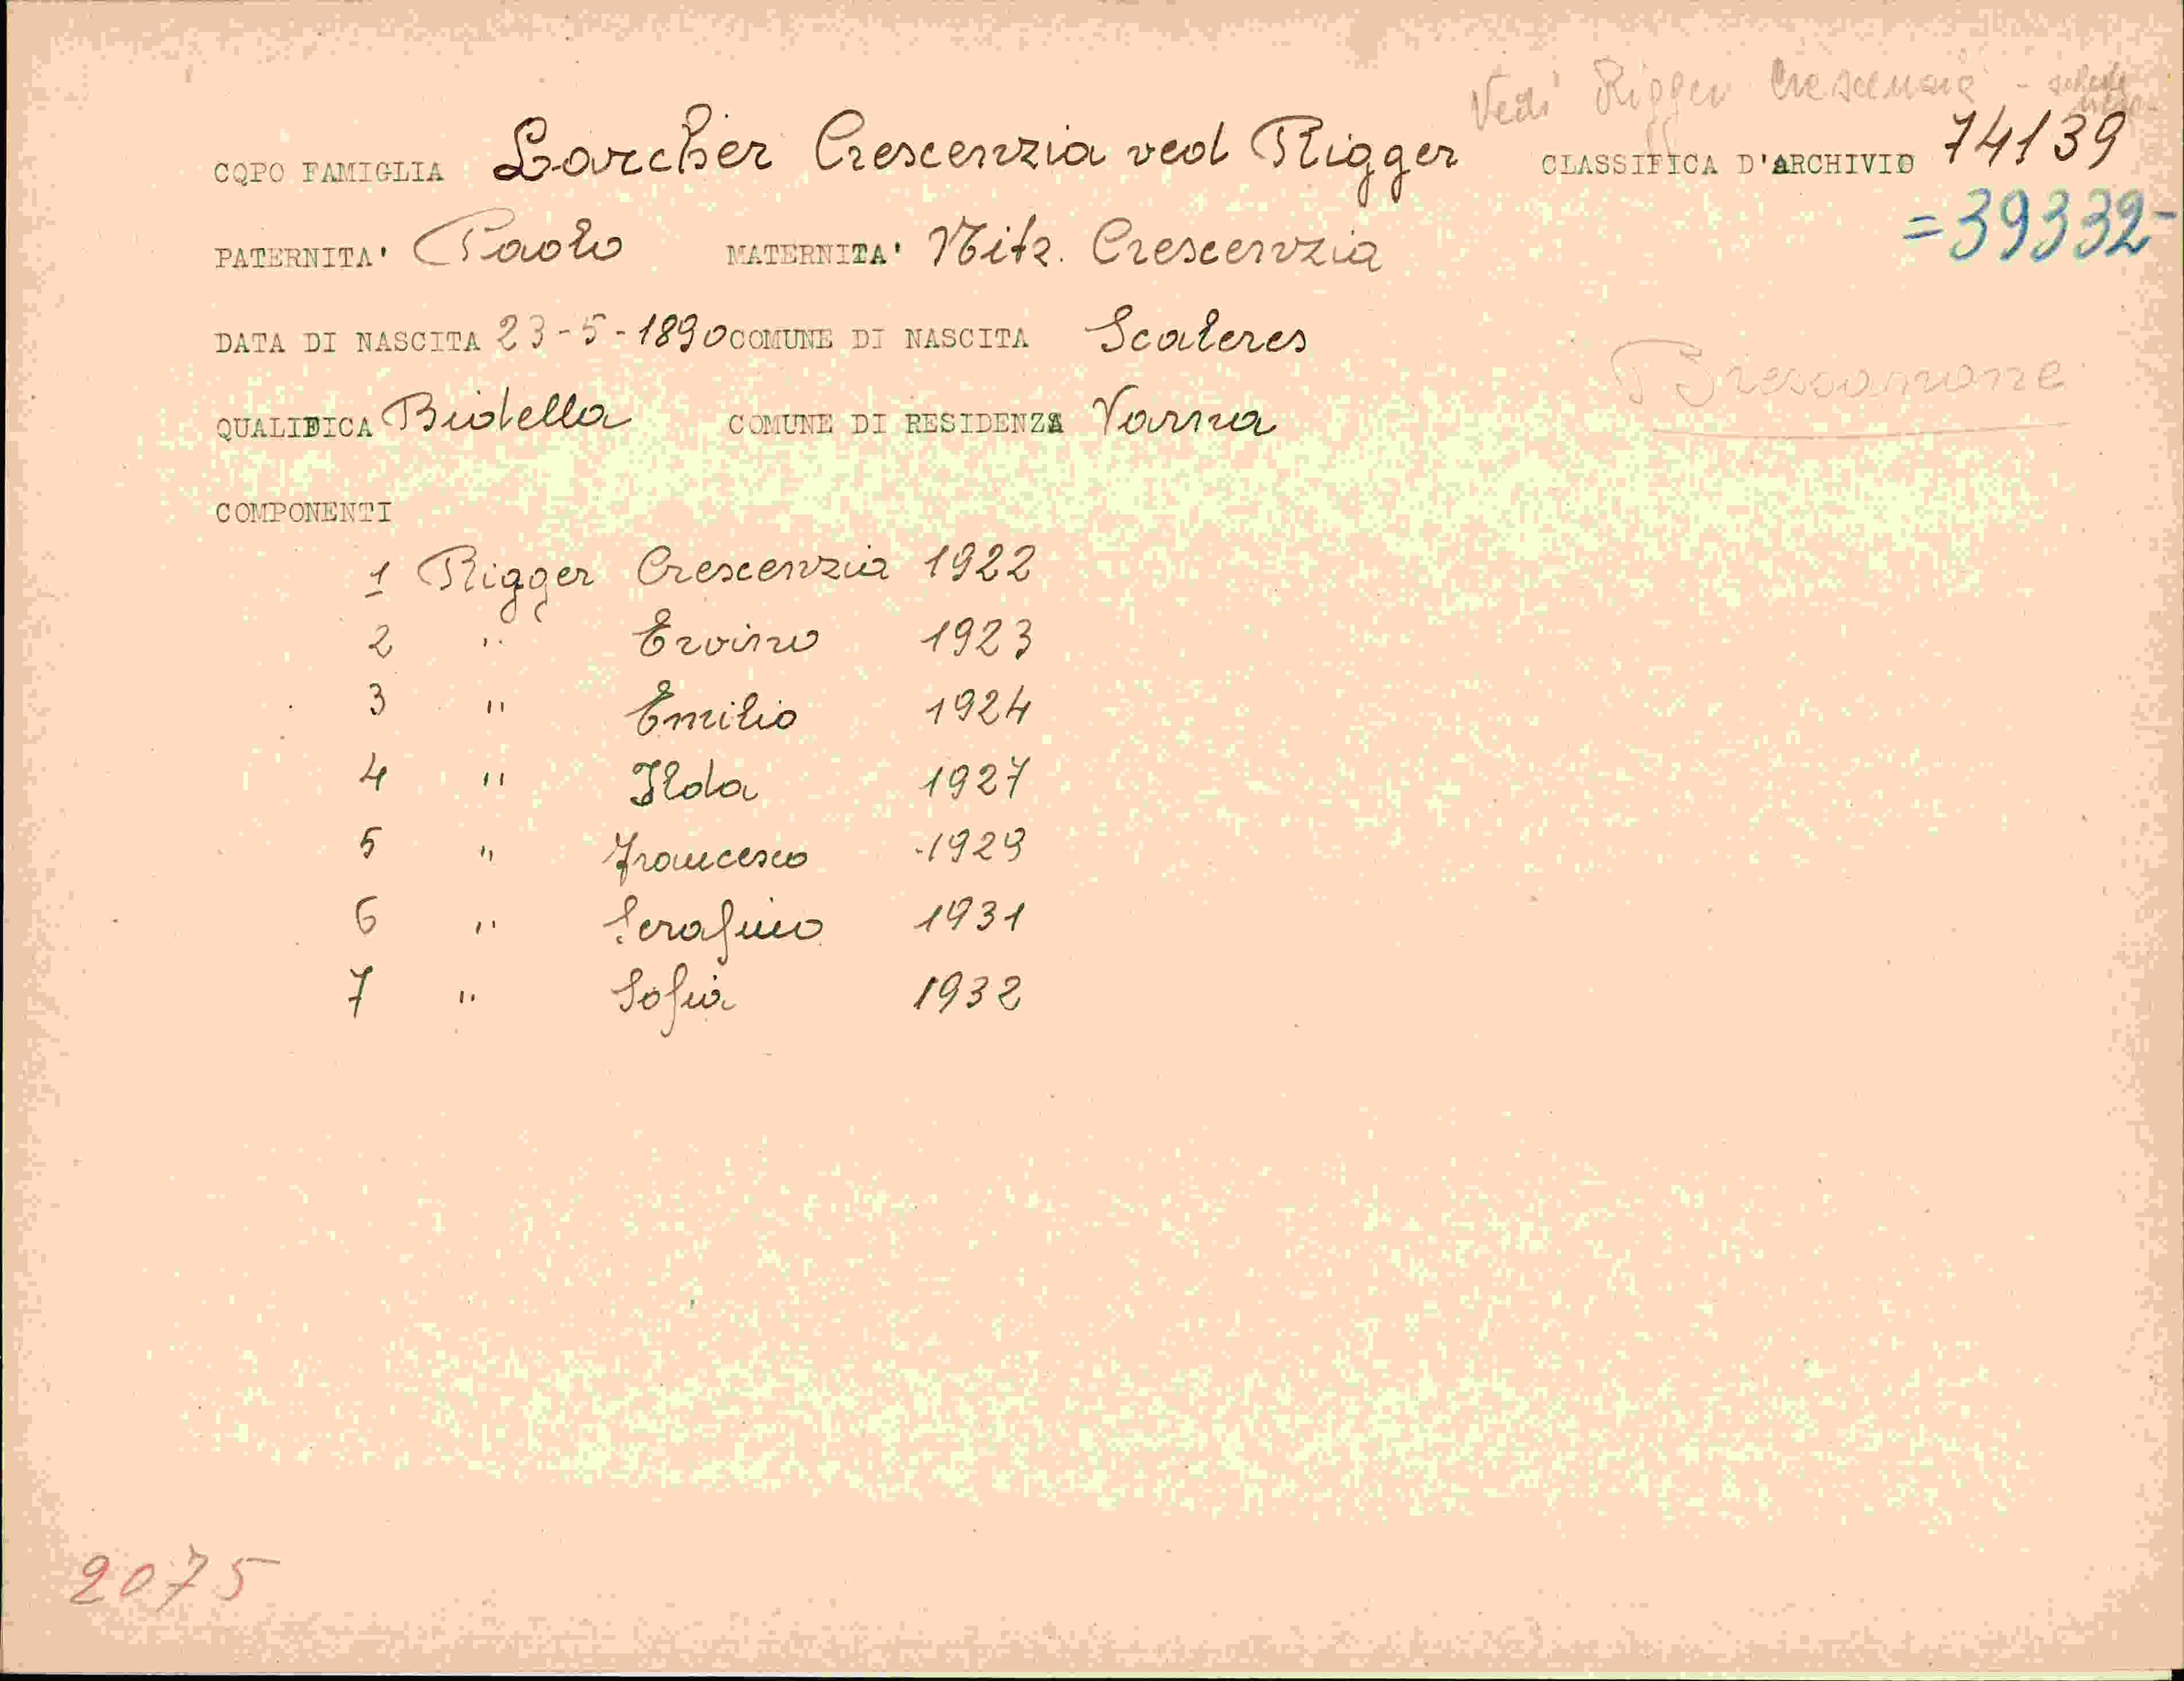 Vedi Rigger Crescenzia -
CQPO FAMIGLIA Larcher Crescenzia ved Rigger CLASSIFICA D'ARCHIVIO 74139
=39332-
PATERNITA' Paolo MATERNITA' Nitz. Crescenzia
DATA DI NASCITA 23-5-1890 COMUNE DI NASCITA Scaleres
Bressanone
QUALIFICA Bidella COMUNE DI RESIDENZA Varna
COMPONENTI
1 Rigger Crescenzia 1922
2 " Ervino 1923
3 " Emilio 1924
4 " Ilda 1927
5 " Francesco 1929
6 " Serafino 1931
7 " Sofia 1932
2075